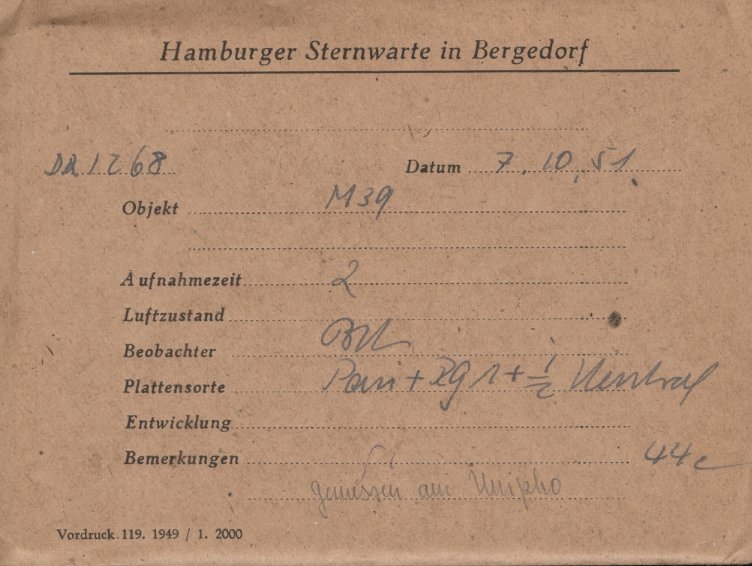 Hamburger Sternwarte in Bergedorf
DR 1268 Datum 7.10.51
Objekt M39
Aufnahmezeit 2
Luftzustand
Beobachter
Plattensorte + 1 + 1/2 Neutral
Entwicklung
Bemerkungen 44c
gemessen am Unipho
Vordruck 119. 1949 / 1. 2000